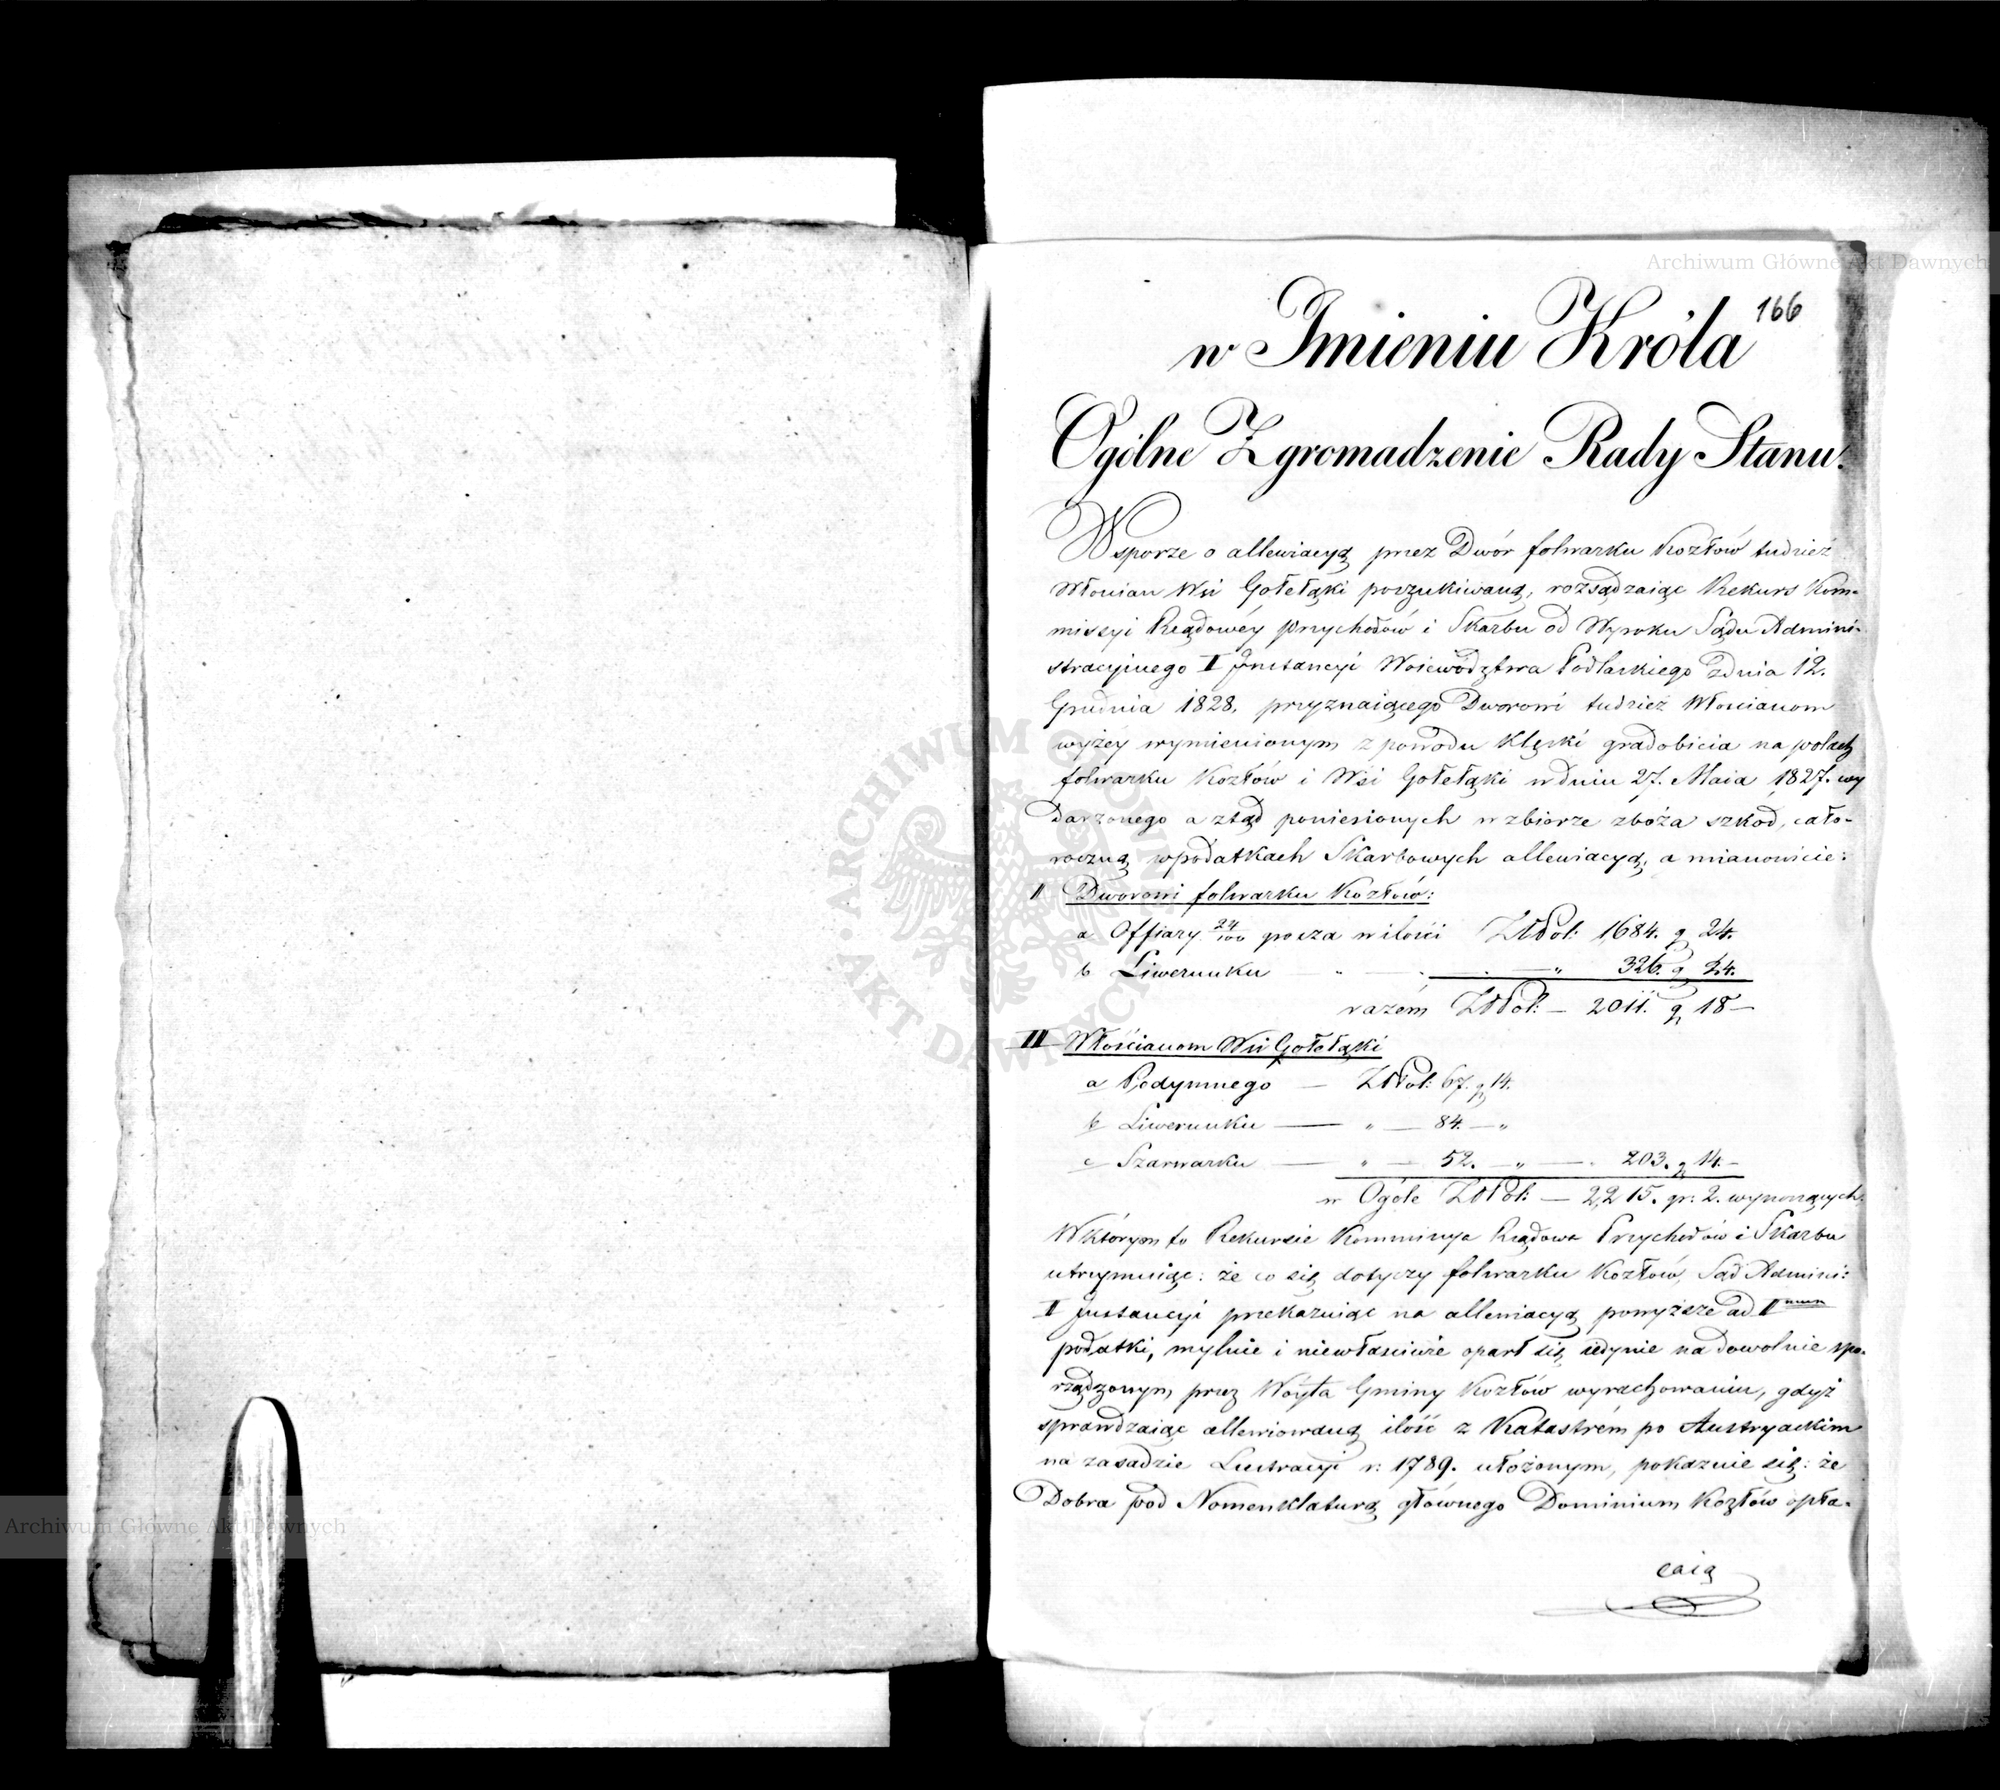 166
w Imieniu Króla
Ogólne Zgromadzenie Rady Stanu.
W sporze o allewiacyą przez Dwór folwarku Kozłów tudzież
Włościan Wsi Gołełąki poszukiwaną, rozsądzaiąc Rekurs Kom-
missyi Rządowéy Przychodów i Skarbu od Wyroku Sądu Admini-
stracyinego I Instancyi Woiewództwa Podlaskiego z dnia 12.
Grudnia 1828. przyznaiącego Dworowi tudzież Włościanom
wyżéy wymienionym z powodu klęski gradobicia na polach
folwarku Kozłów i Wsi Gołełąki w dniu 27. Maia 1827. wy
darzonego a ztąd poniesionych w zbiorze zboża szkód, cało-
roczną w podatkach Skarbowych allewiacyą, a mianowicie:
I Dworowi folwarku Kozłów:
a Offiary 24/100 grosza w ilości Złpol: 1684. g 24.
b Liwerunku " — " 326. g 24.
razém Złpol: — 2011. g 18 —
II Włościanom Wsi Gołełąki
a Podymnego — Złpol: 67. g 14.
b Liwerunku — " — 84. — "
c Szarwarku — " — 52. — " — 203. g 14. —
w Ogóle Złpol: — 2215. gr: 2. wynoszących.
W którym to Rekursie Kommissya Rządowa Przychodów i Skarbu
utrzymuiąc: że co się dotyczy folwarku Kozłów, Sąd Admini:
I Instancyi przekazuiąc na allewiacyą powyższe ad I
podatki, mylnie i niewłaściwie oparł się, iedynie na dowolnie spo-
rządzonym przez Wóyta Gminy Kozłów wyrachowaniu, gdyż
sprawdzaiąc allewiowaną ilość z Katastrém po Austryackim
na zasadzie Lustracyi r: 1789. ułożonym, pokazuie się: że
Dobra pod Nomenklaturą głównego Dominium Kozłów opła-
caią
Archiwum Główne Akt Dawnych
ARCHIWUM GŁÓWNE AKT DAWNYCH
Archiwum Główne Akt Dawnych